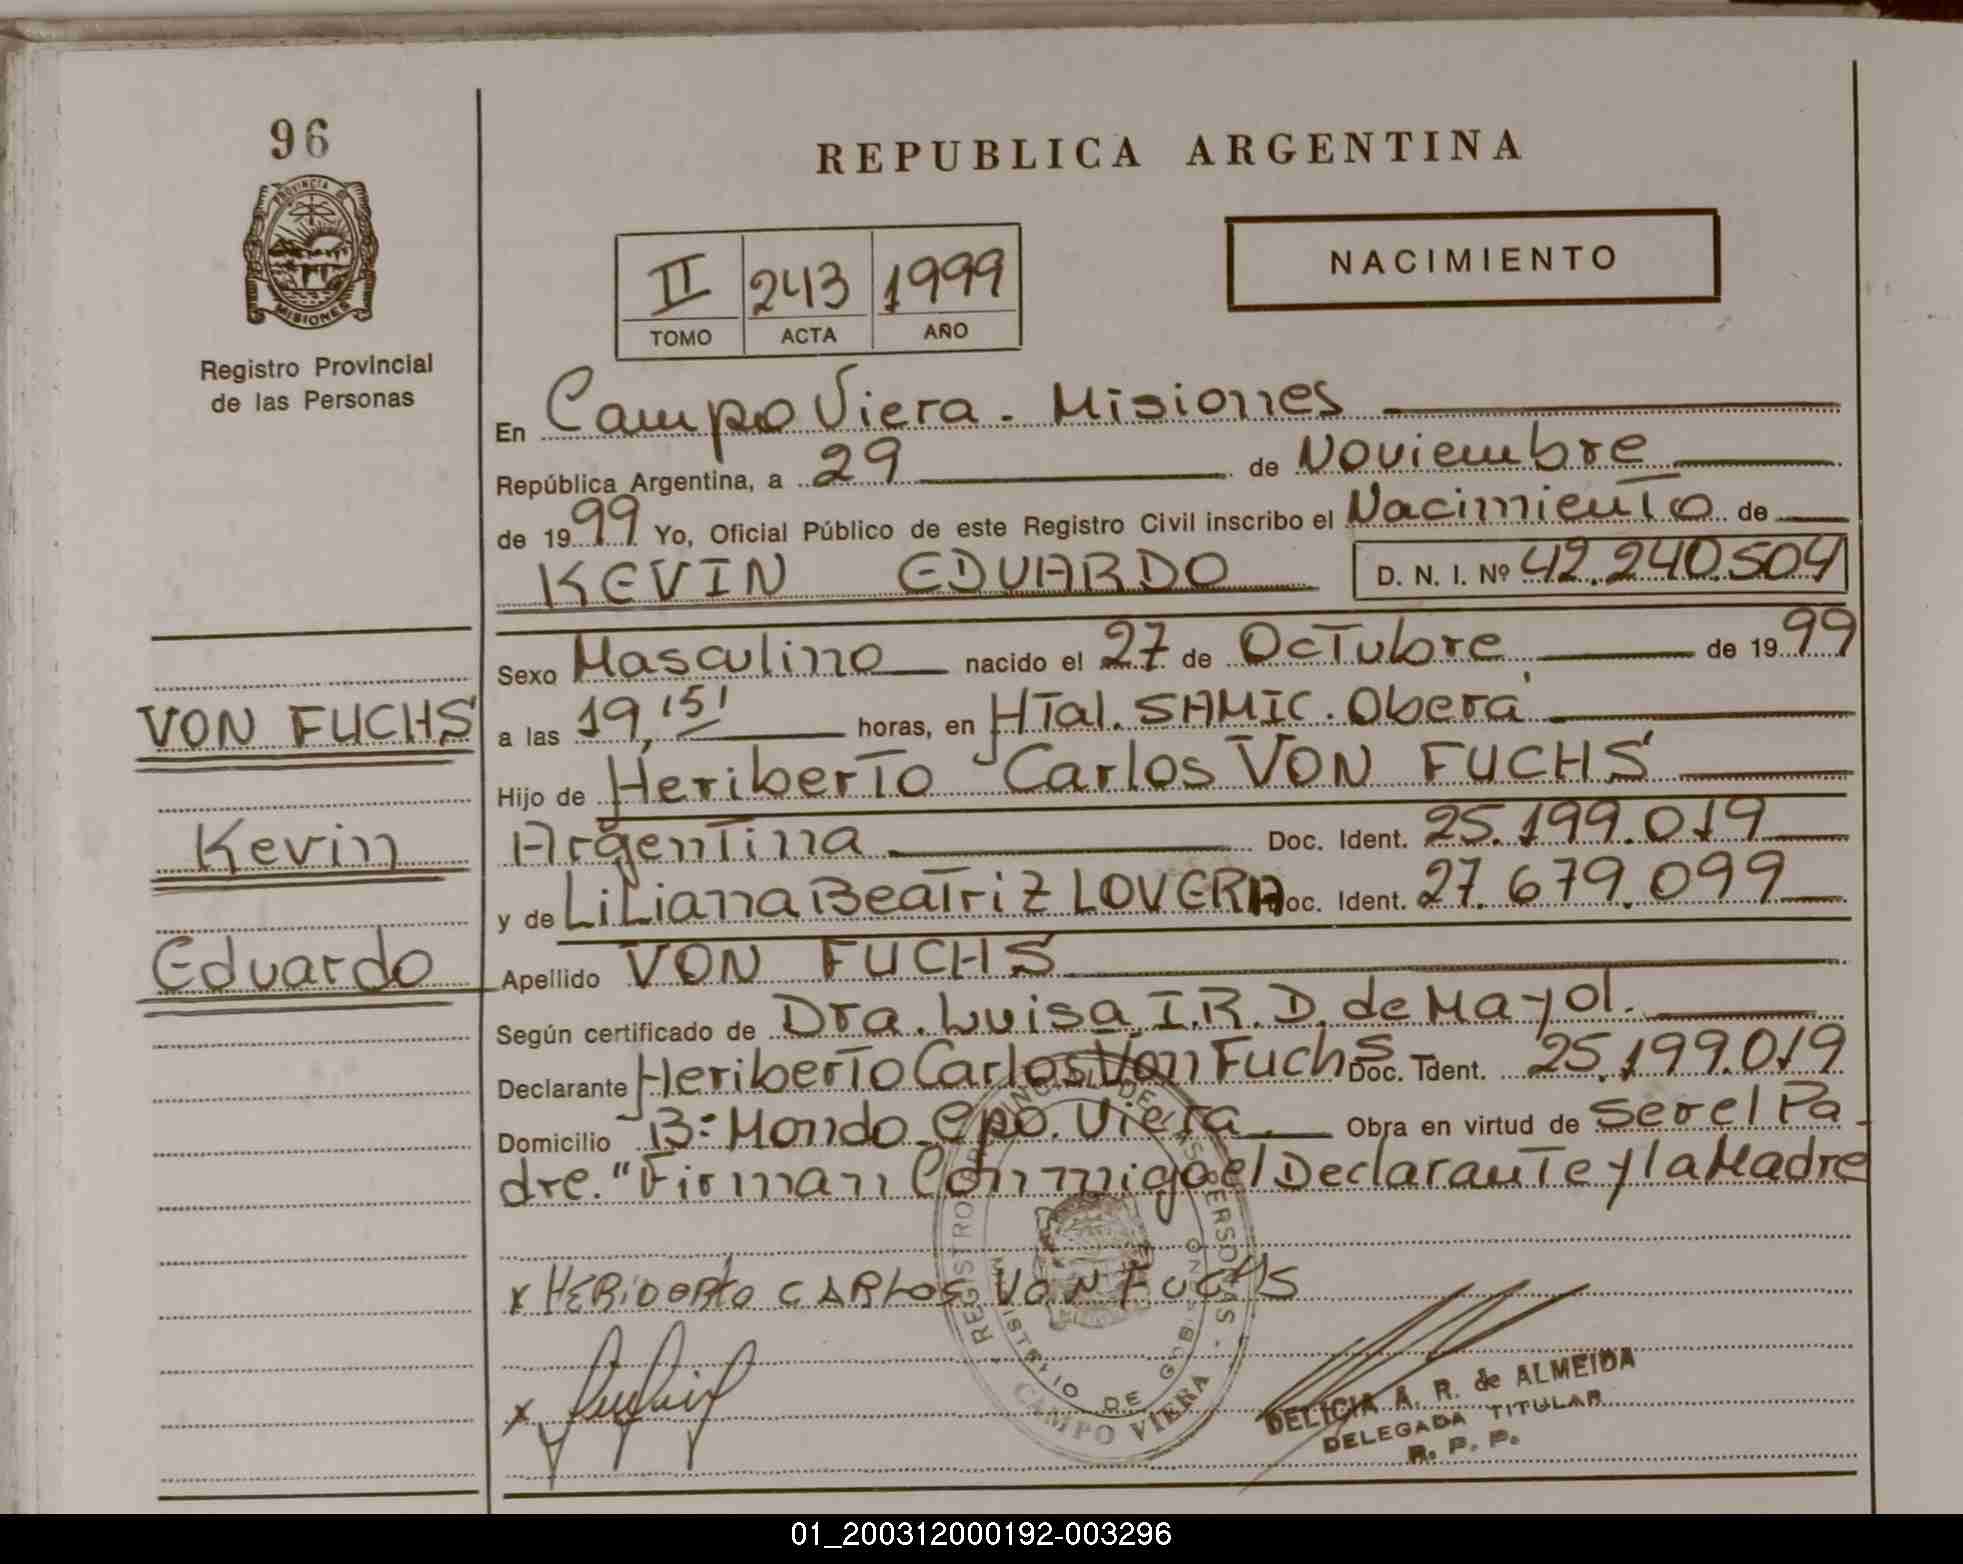 96
REPUBLICA ARGENTINA
PROVINCIA DE
MISIONES
NACIMIENTO
II 243 1999
TOMO ACTA AÑO
Registro Provincial
de las Personas
En Campo Viera - Misiones
República Argentina, a 29 de Noviembre
de 1999 Yo, Oficial Público de este Registro Civil inscribo el Nacimiento de
KEVIN EDUARDO D. N. I. Nº 42.240.504
Sexo Masculino nacido el 27 de Octubre de 1999
VON FUCHS
a las 19,15' horas, en HTal. SAMIC. Oberá
Hijo de Heriberto Carlos VON FUCHS
Kevin
Argentina Doc. Ident. 25.199.019
y de LiLiana Beatriz LOVERA Doc. Ident. 27.679.099
Eduardo
Apellido VON FUCHS
Según certificado de Dra. Luisa I.R.D. de Mayol.
Declarante Heriberto Carlos Von Fuchs Doc. Ident. 25.199.019
Domicilio B: Mondo Cpo. Viera Obra en virtud de ser el Pa
dre. "Firman Conmigo el Declarante y la Madre
x HERIBERTO CARLOS VON FUCHS
x
REGISTRO PROVINCIAL DE LAS PERSONAS
MINISTERIO DE GOBIERNO
CAMPO VIERA
DELICIA A. R. de ALMEIDA
DELEGADA TITULAR
R. P. P.
01_200312000192-003296